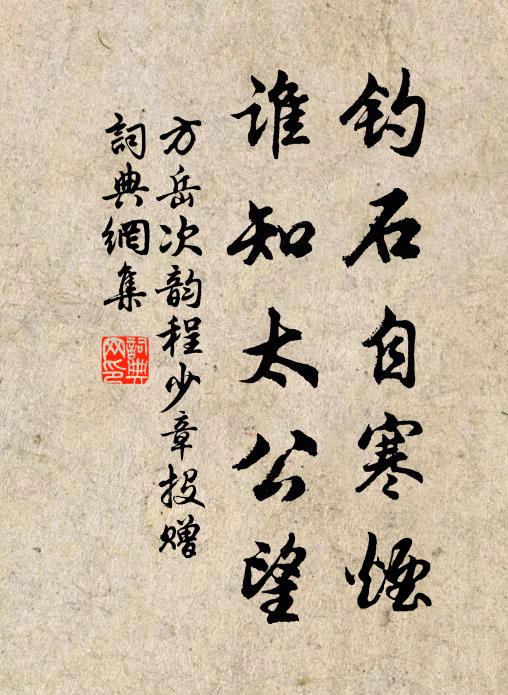 钓石自寒烟
谁知太公望
方岳次韵程少章投赠
詞典網集
詞典網印